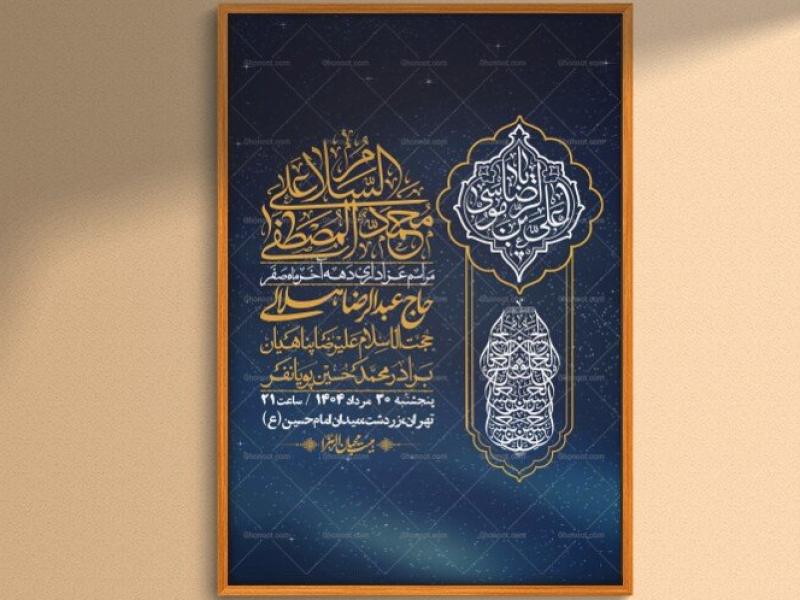 السلام علی
محمد المصطفی
مراسم عزاداری دهه آخر ماه صفر
حاج عبدالرضا هلالی
حجت الاسلام علیرضا پناهیان
برادر محمدحسین پویانفر
پنجشنبه ۳۰ مرداد ۱۴۰۴ / ساعت ۲۱
تهران، زردشت، میدان امام حسین (ع)
یا علی بن موسی الرضا
Ghonoot.com